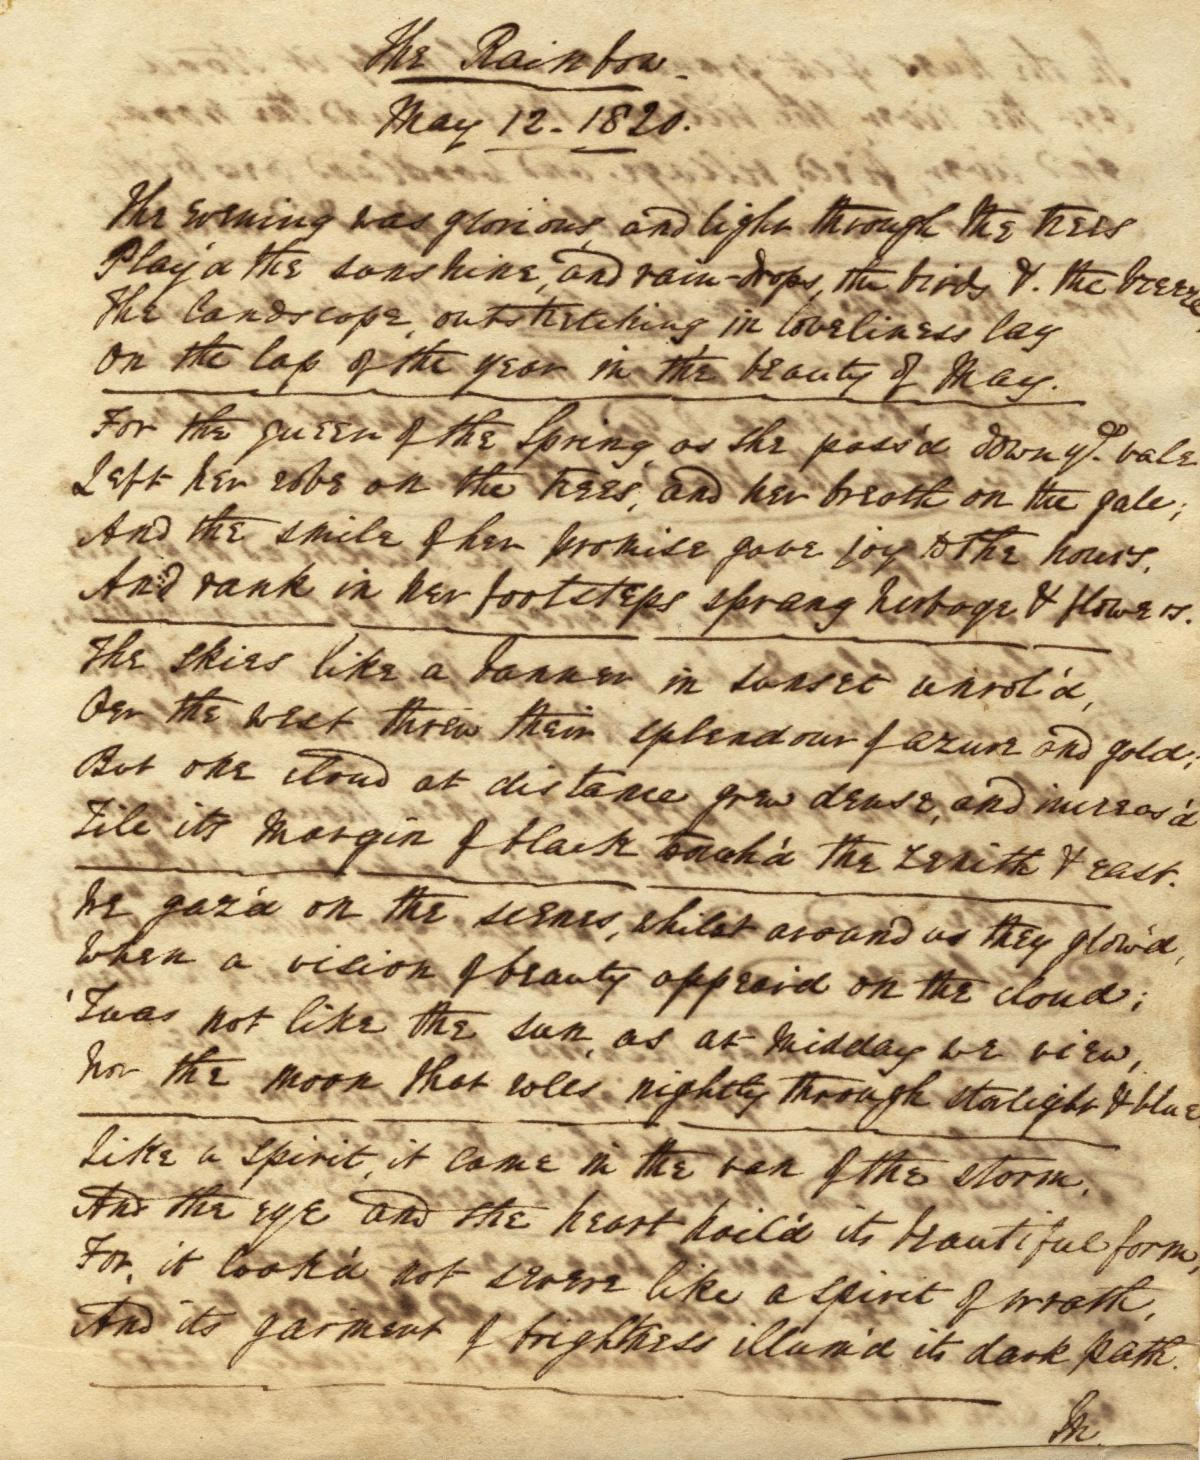 The Rainbow.
May 12. 1820.
The evening was glorious, and light through the trees
Play'd the sunshine, and rain-drops, the birds &. the breeze,
The landscape, outstretching in loveliness lay
On the lap of the year in the beauty of May.
For the queen of the Spring, as she pass'd down ye. vale
Left her robe on the trees, and her breath on the gale;
And the smile of her promise gave joy to the hours,
And rank in her footsteps sprang herbage & flowers.
The skies like a banner in sunset unrol'd,
Oer the west threw their splendour of azure and gold;
But one cloud at distance grew dense, and increas'd
Till its margin of black touch'd the zenith & east.
We gaz'd on the scenes, whilst around us they glow'd,
When a vision of beauty appear'd on the cloud;
'Twas not like the sun, as at midday we view,
Nor the moon that roles nightly through starlight & blue
Like a spirit, it came in the van of the storm,
And the eye and the heart hail'd its beautiful form,
For, it look'd not severe like a spirit of wrath,
And its garment of brightness illum'd its dark path.